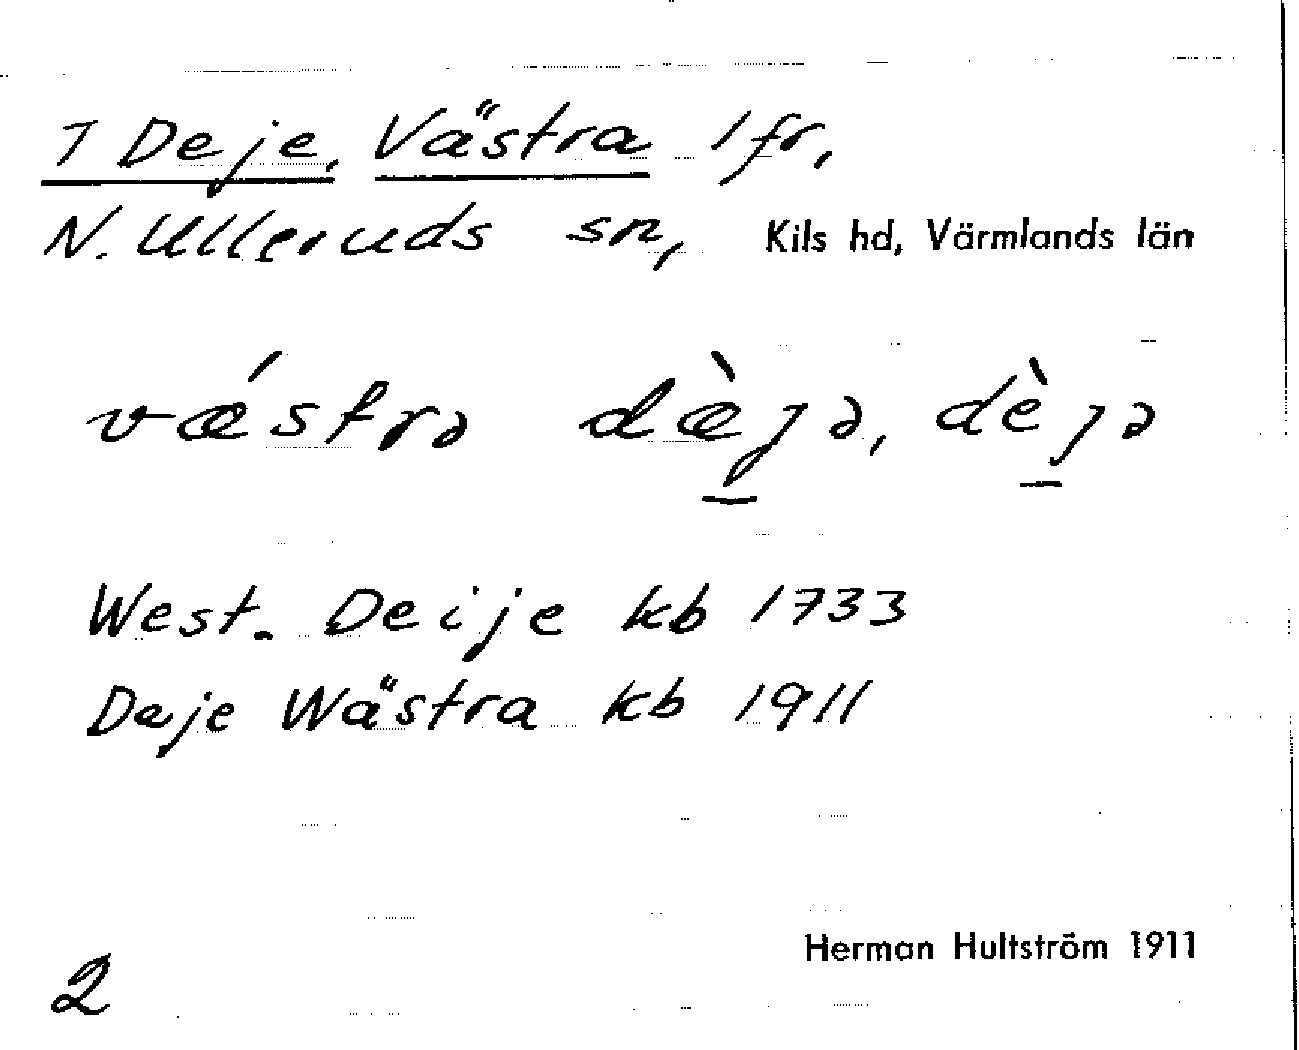 1 Deje, Västra 1 fr,
N. Ulleruds sn, Kils hd, Värmlands län
vǽstrə dæ̀jə, dèjə
West. Deije kb 1733
Deje Wästra kb 1911
Herman Hultström 1911
2